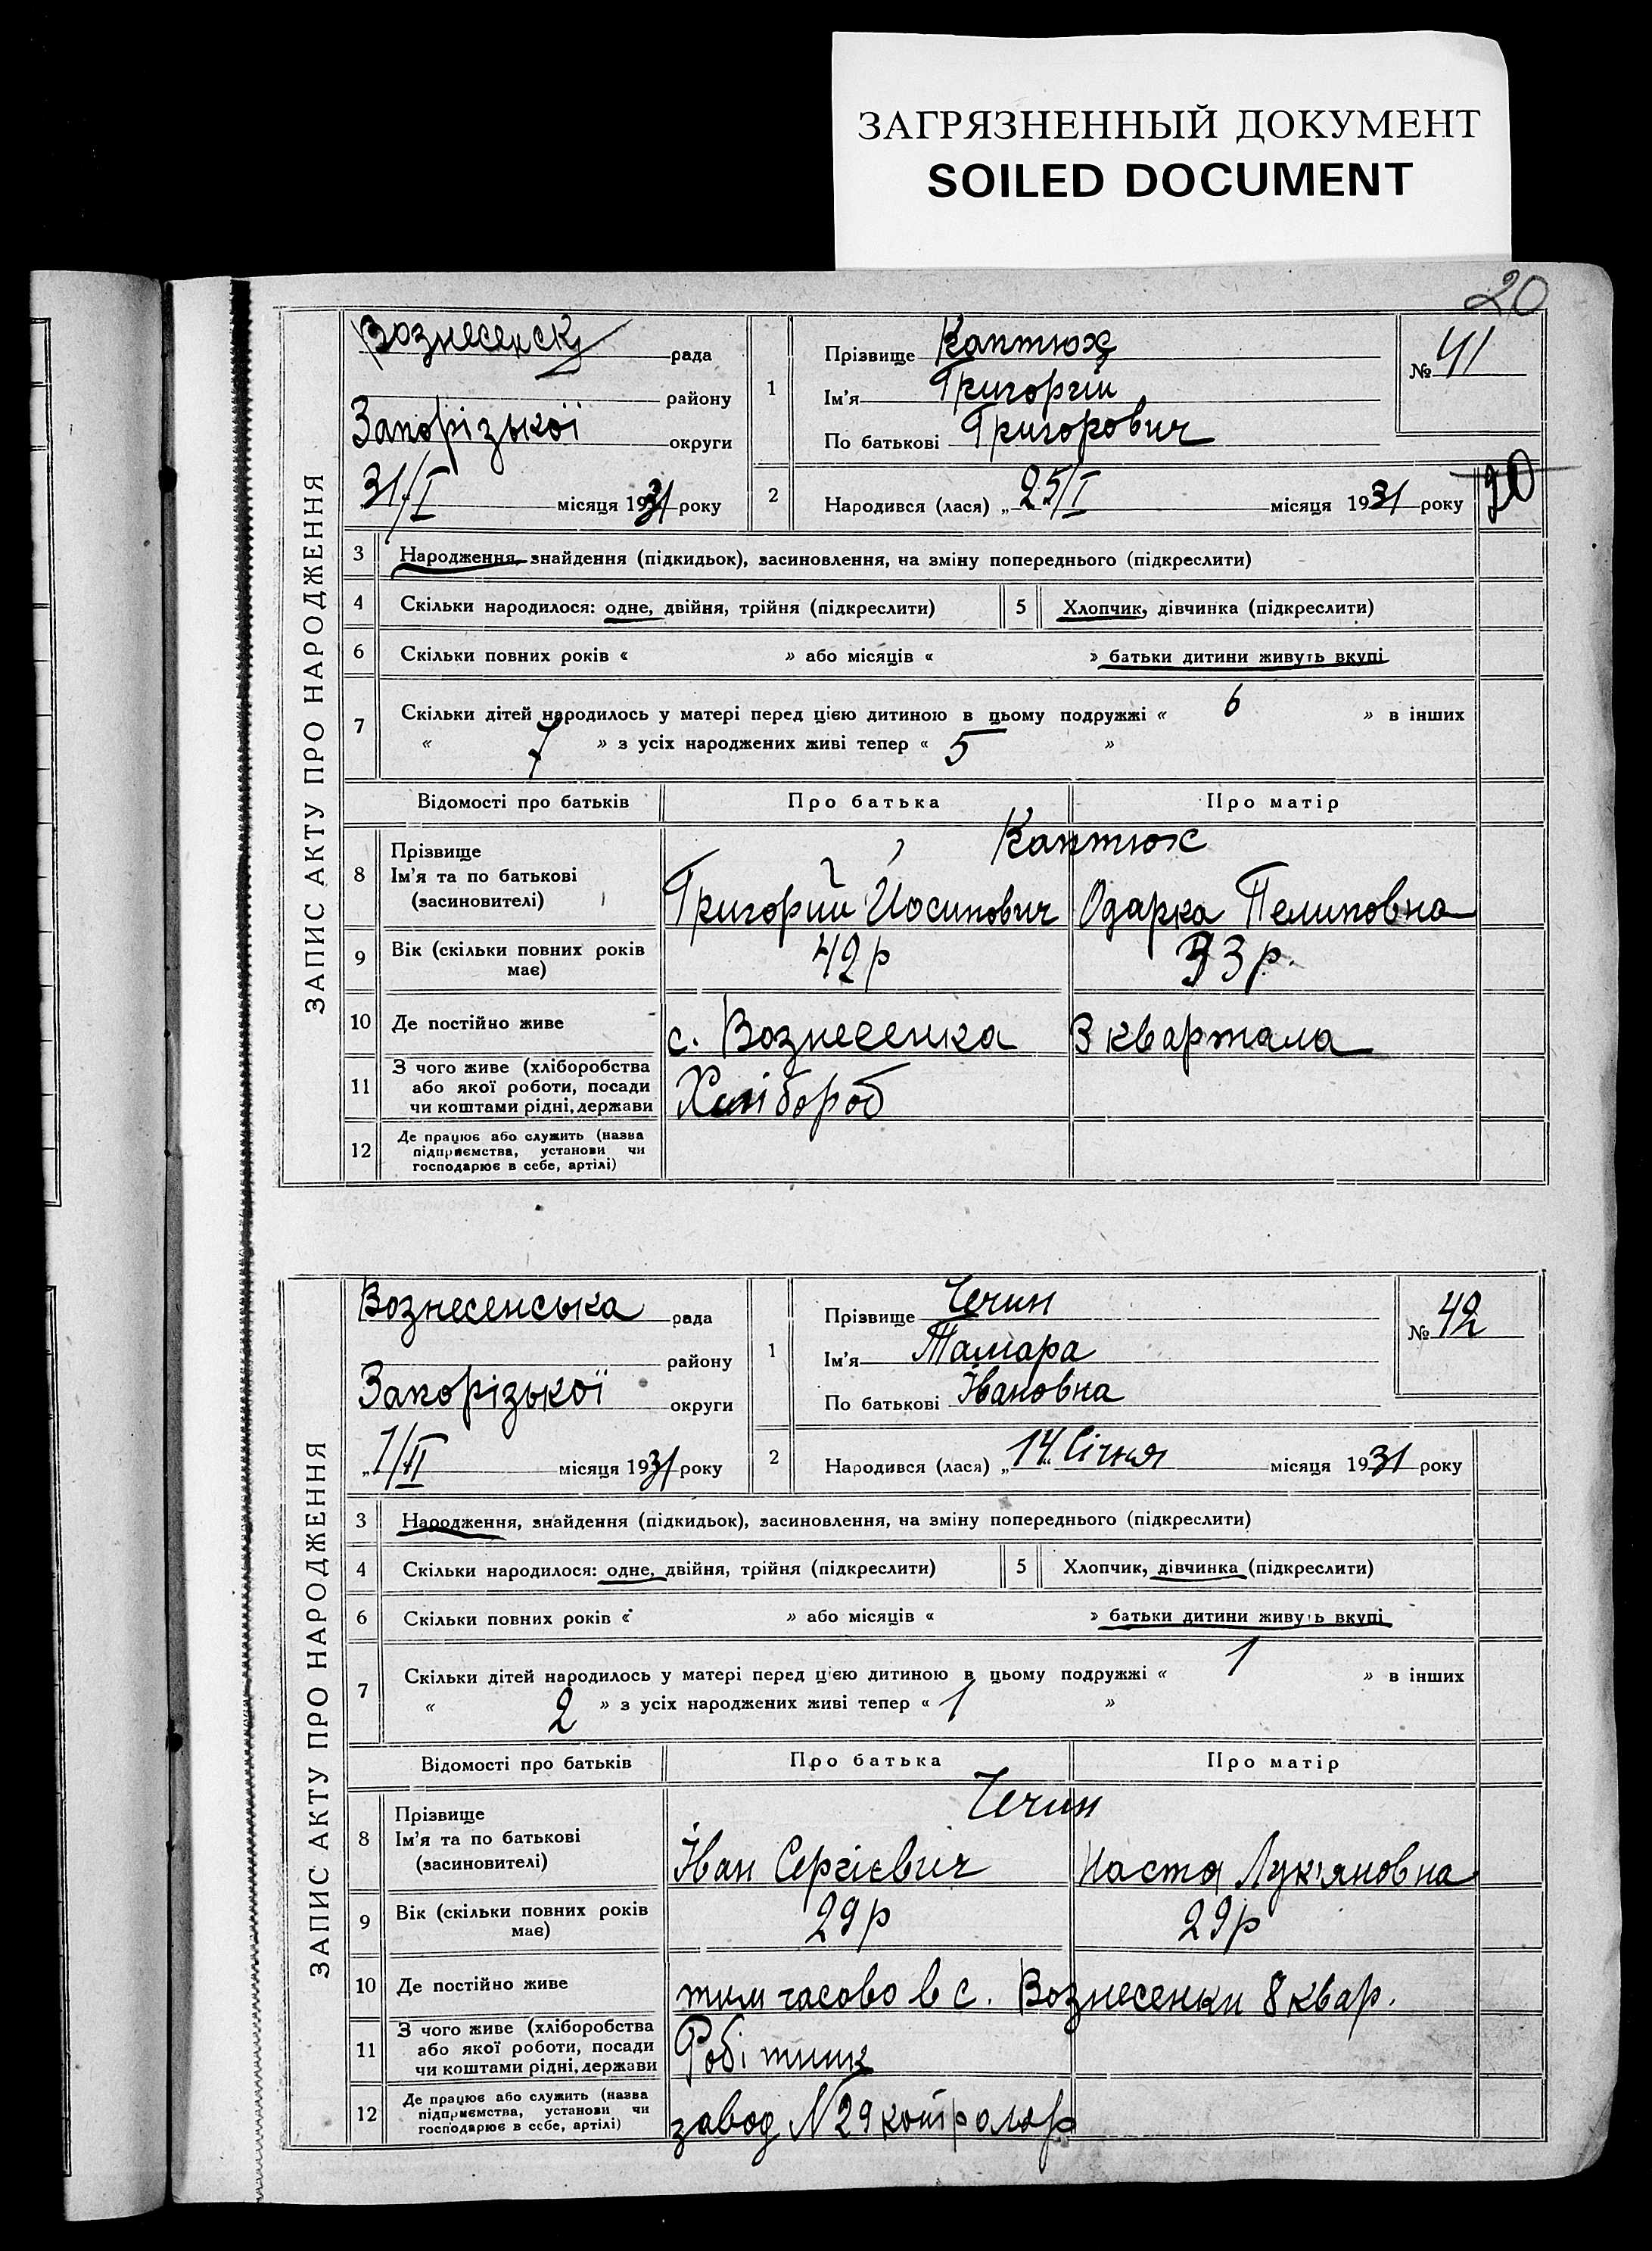 ЗАГРЯЗНЕННЫЙ ДОКУМЕНТ
SOILED DOCUMENT
20
ЗАПИС АКТУ ПРО НАРОДЖЕННЯ
Вознесенськ рада
району
Запорізької округи
31/I місяця 1931 року
1 Прізвище Каптюх
Ім'я Григорій
По батькові Григорович
№ 41
2 Народився (лася) „ 25/I місяця 1931 року
20
3 Народження, знайдення (підкидьок), засиновлення, на зміну попереднього (підкреслити)
4 Скільки народилося: одне, двійня, трійня (підкреслити) 5 Хлопчик, дівчинка (підкреслити)
6 Скільки повних років « » або місяців « » батьки дитини живуть вкупі
7 Скільки дітей народилось у матері перед цією дитиною в цьому подружжі « 6 » в інших
« 7 » з усіх народжених живі тепер « 5 »
Відомості про батьків Про батька Про матір
8 Прізвище
Ім'я та по батькові
(засиновителі)
Каптюх
Григорий Йосипович Одарка Пелиповна
9 Вік (скільки повних років
має)
42 р 33 р.
10 Де постійно живе с. Вознесенка 3 квартала
11 З чого живе (хліборобства
або якої роботи, посади
чи коштами рідні, держави
Хлібороб
12 Де працює або служить (назва
підприємства, установи чи
господарює в себе, артілі)
ЗАПИС АКТУ ПРО НАРОДЖЕННЯ
Вознесенська рада
району
Запорізької округи
„ 1/II місяця 1931 року
1 Прізвище Чечин
Ім'я Тамара
По батькові Івановна
№ 42
2 Народився (лася) „ 14 Січня місяця 1931 року
3 Народження, знайдення (підкидьок), засиновлення, на зміну попереднього (підкреслити)
4 Скільки народилося: одне, двійня, трійня (підкреслити) 5 Хлопчик, дівчинка (підкреслити)
6 Скільки повних років « » або місяців « » батьки дитини живуть вкупі
7 Скільки дітей народилось у матері перед цією дитиною в цьому подружжі « 1 » в інших
« 2 » з усіх народжених живі тепер « 1 »
Відомості про батьків Про батька Про матір
8 Прізвище
Ім'я та по батькові
(засиновителі)
Чечин
Іван Сергієвич Наста Лук'яновна
9 Вік (скільки повних років
має)
29 р 29 р
10 Де постійно живе тимчасово в с. Вознесенки 8 квар.
11 З чого живе (хліборобства
або якої роботи, посади
чи коштами рідні, держави
Робітник
12 Де працює або служить (назва
підприємства, установи чи
господарює в себе, артілі)
завод N 29 контролер